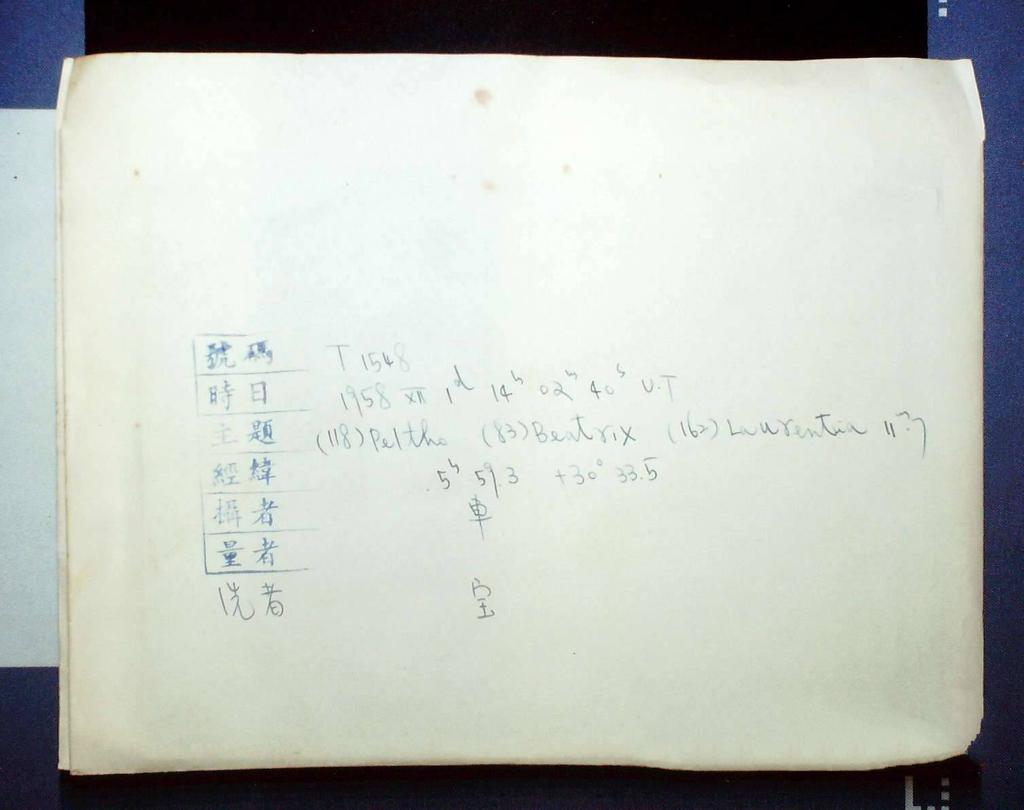 號碼 T 1548
時日 1958 XII 1ᵈ 14ʰ 02ᵐ 40ˢ U.T
主題 (118) Peltho (83) Beatrix (162) Laurentia 11ᵐ.7
經緯 5ʰ 59.3 +30° 33.5
攝者 車
量者
洗者 宝